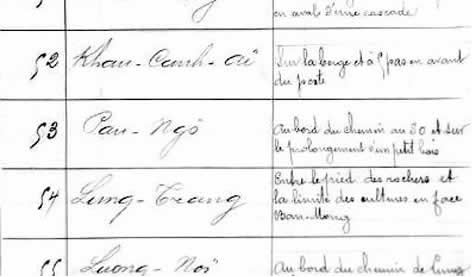 en aval d'une cascade
52 Khau-Canh-ai Sur la berge et à 5 pas en avant
du poste
53 Pan-Ngô Au bord du chemin au 50 et sur
le prolongement d'un petit bois
54 Lung-Trang Entre le pied des rochers et
la limite des cultures en face
Ban-Mong
55 Luong-Noi Au bord du chemin de Lung